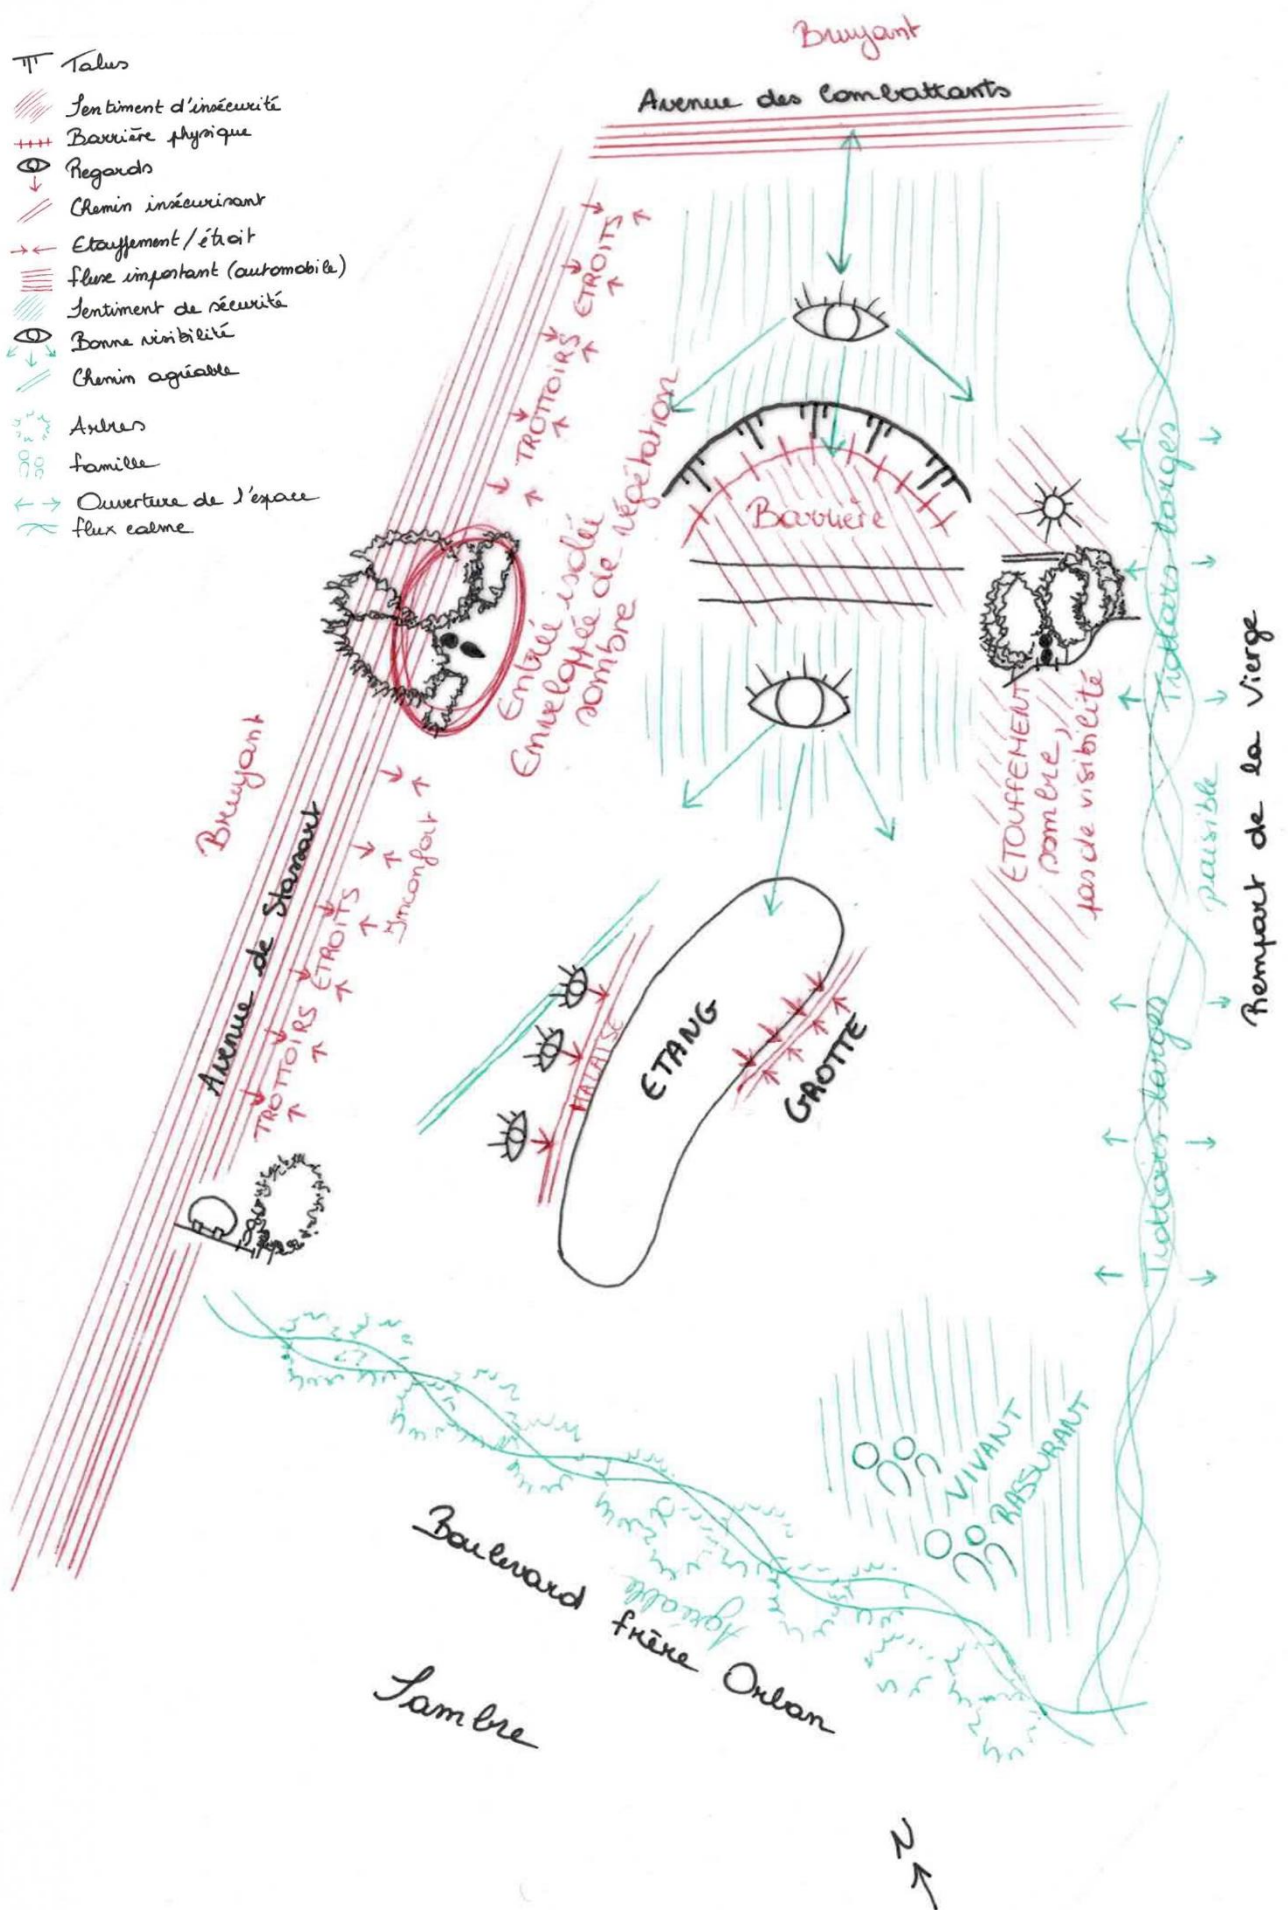 Talus
Sentiment d'insécurité
Barrière physique
Regards
Chemin insécurisant
Etouffement/étroit
flux important (automobile)
Sentiment de sécurité
Bonne visibilité
Chemin agréable
Arbres
famille
Ouverture de l'espace
flux calme
Bruyant
Avenue des Combattants
TROTTOIRS ETROITS
Entrée isolée
Enveloppée de végétation
sombre
Barrière
Trottoirs larges
ETOUFFEMENT
sombre,
pas de visibilité
paisible
Rempart de la Vierge
Bruyant
Avenue de Stassart
Inconfort
TROTTOIRS ETROITS
MALAISE
ETANG
GROTTE
Trottoirs larges
VIVANT
RASSURANT
Agréable
Boulevard frère Orban
Sambre
N